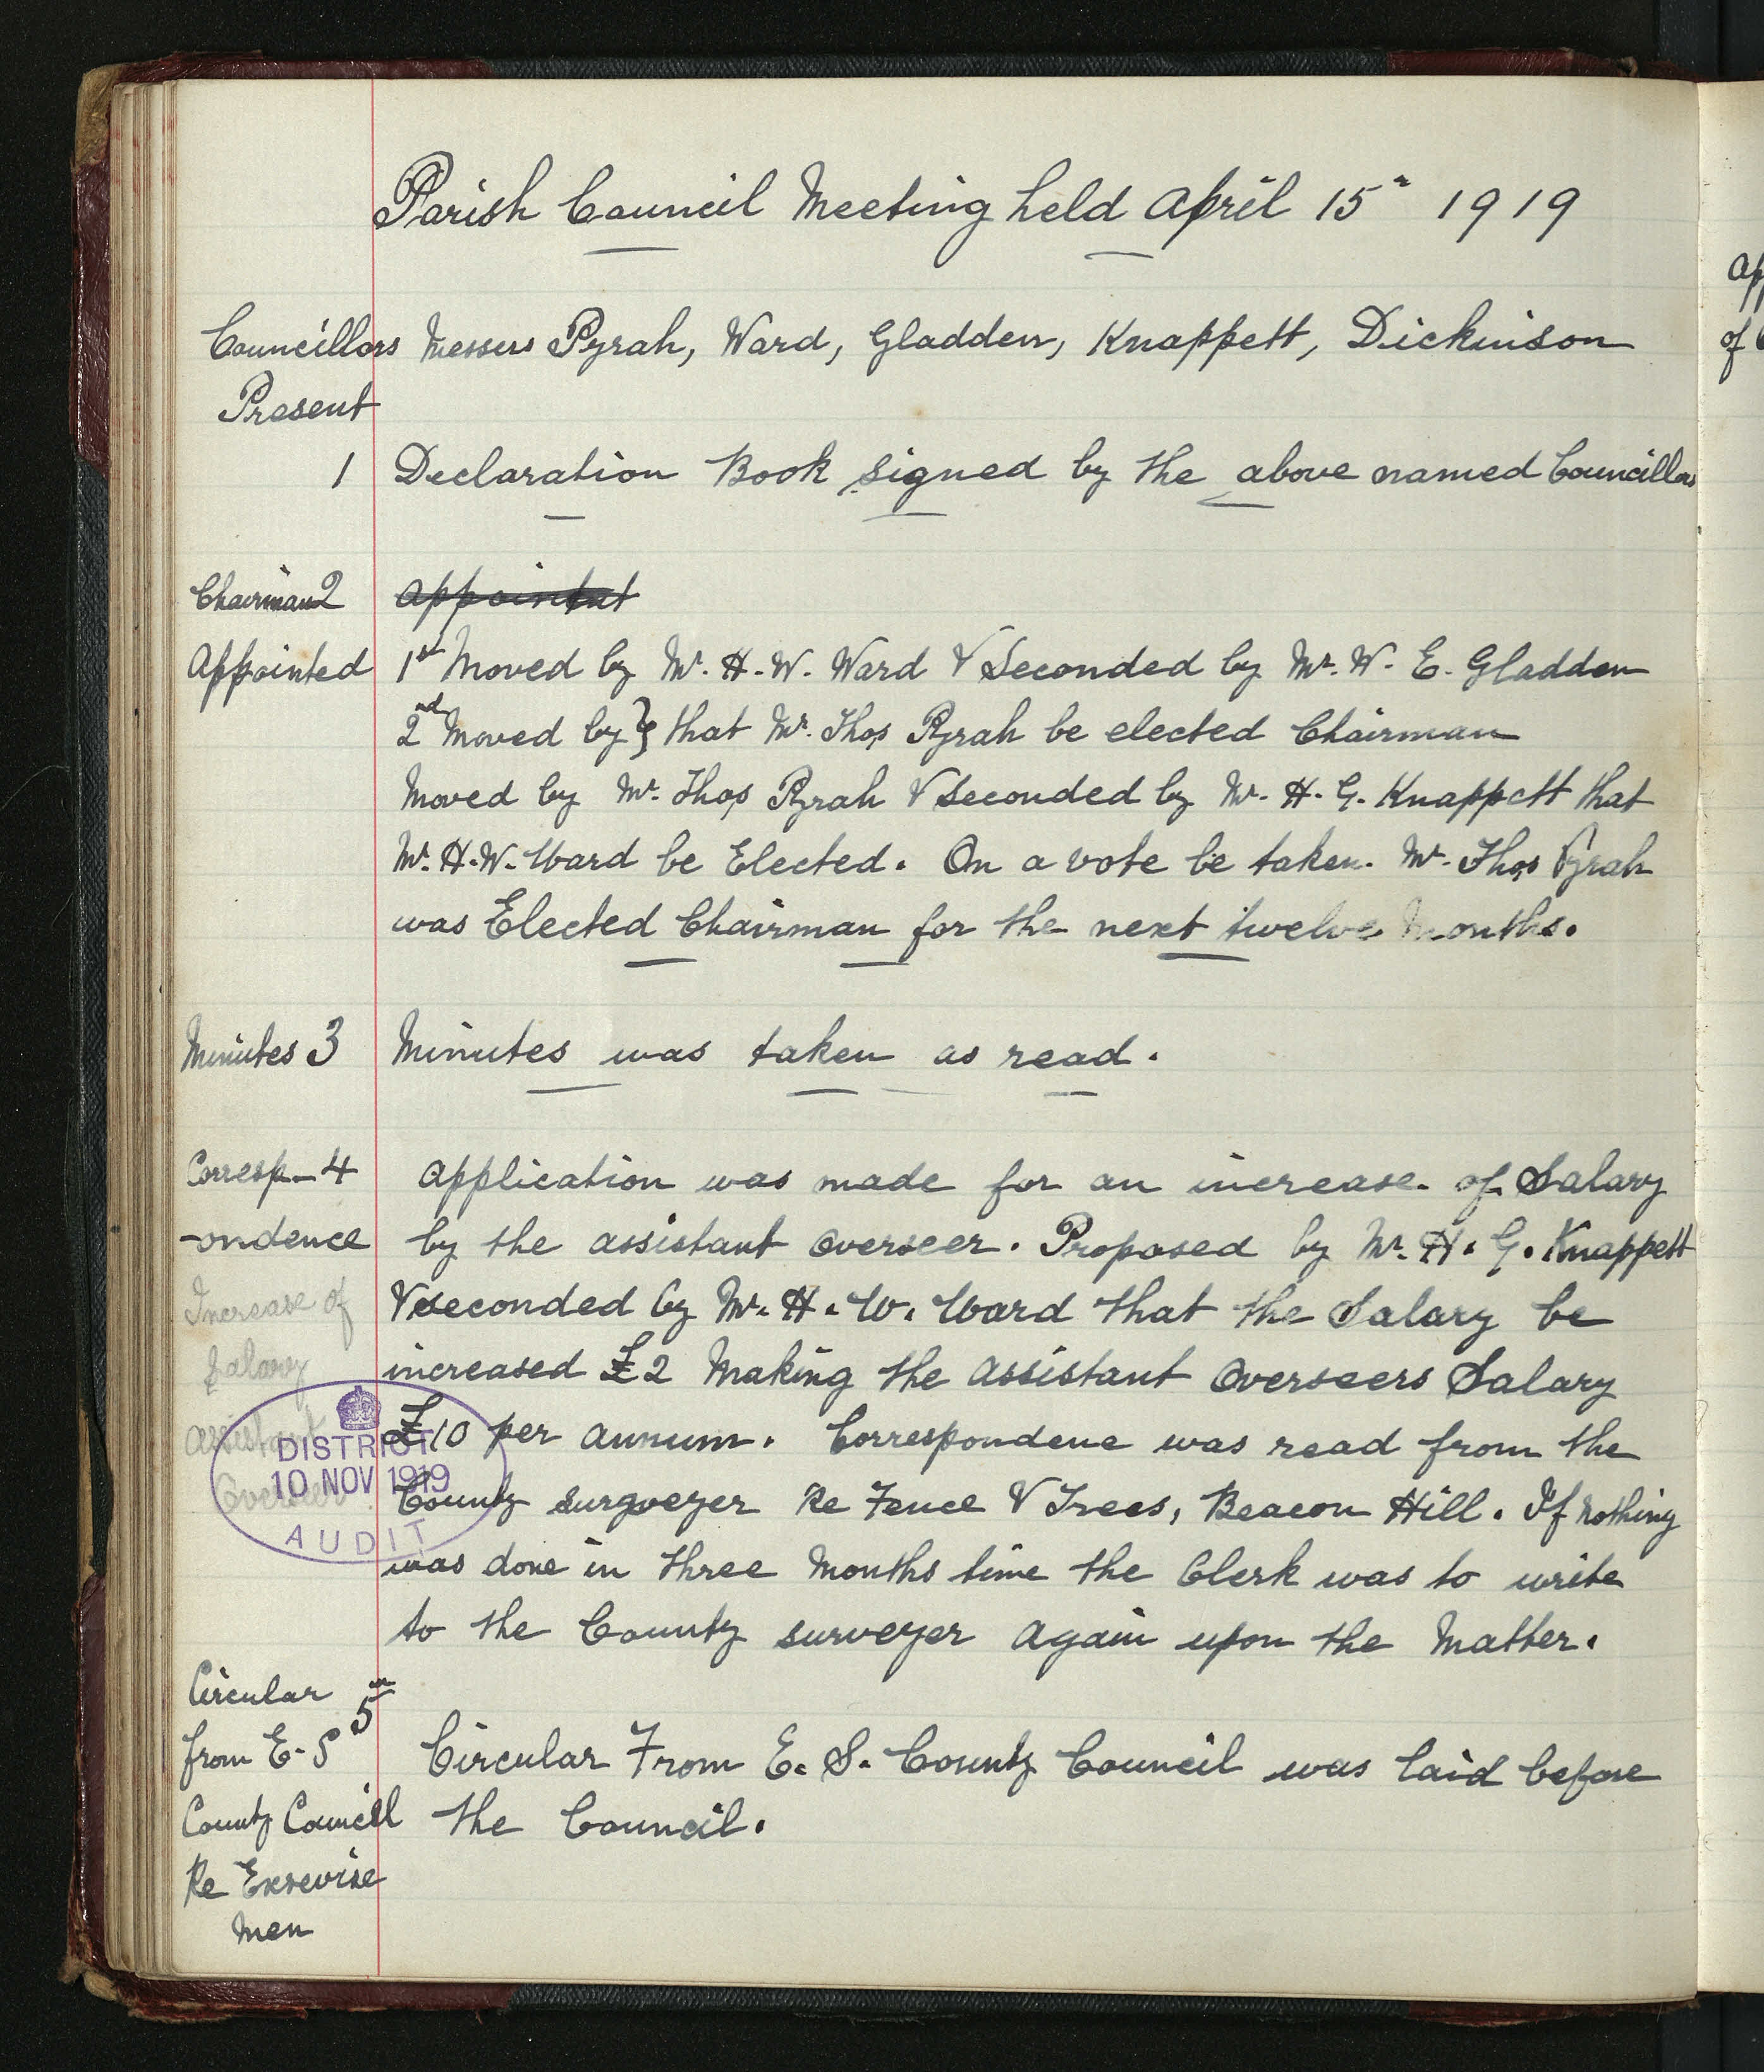 Parish Council Meeting held April 15" 1919
Councillors Messers Pyrah, Ward, Gladden, Knappett, Dickinson
Present
1 Declaration Book signed by the above named Councillors
Chairman 2
Appointed 1st Moved by Mr. H. W. Ward & Seconded by Mr. W. E. Gladden
2nd Moved by } that Mr. Thos Pyrah be elected Chairman
Moved by Mr. Thos Pyrah & Seconded by Mr. H. G. Knappett that
Mr. H. W. Ward be Elected. On a vote be taken. Mr. Thos Pyrah
was Elected Chairman for the next twelve Months.
Minutes 3 Minutes was taken as read.
Corresp- 4 Application was made for an increase of Salary
-ondence by the assistant Overseer. Proposed by Mr. H. G. Knappett
Increase of & seconded by Mr. H. W. Ward that the Salary be
Salary increased £2 Making the assistant Overseers Salary
Assistant £10 per annum. Correspondene was read from the
Overseer County surgveyer Re Fence & Trees, Beacon Hill. If nothing
DISTRICT
10 NOV 1919
AUDIT
was done in three Months time the Clerk was to write
to the County surveyer again upon the Matter.
Circular 5
from E. S Circular From E. S. County Council was laid before
County Council the Council.
Re Exsevise
Men
Ap
of